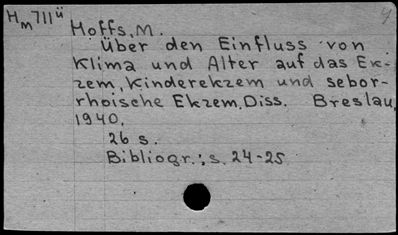 Hm711ü
Hoffs, M.
Über den Einfluss von
Klima und Alter auf das Ek-
zem, Kinderekzem und sebor-
rhoische Ekzem. Diss. Breslau,
1940.
26 s.
Bibliogr.: s. 24-25